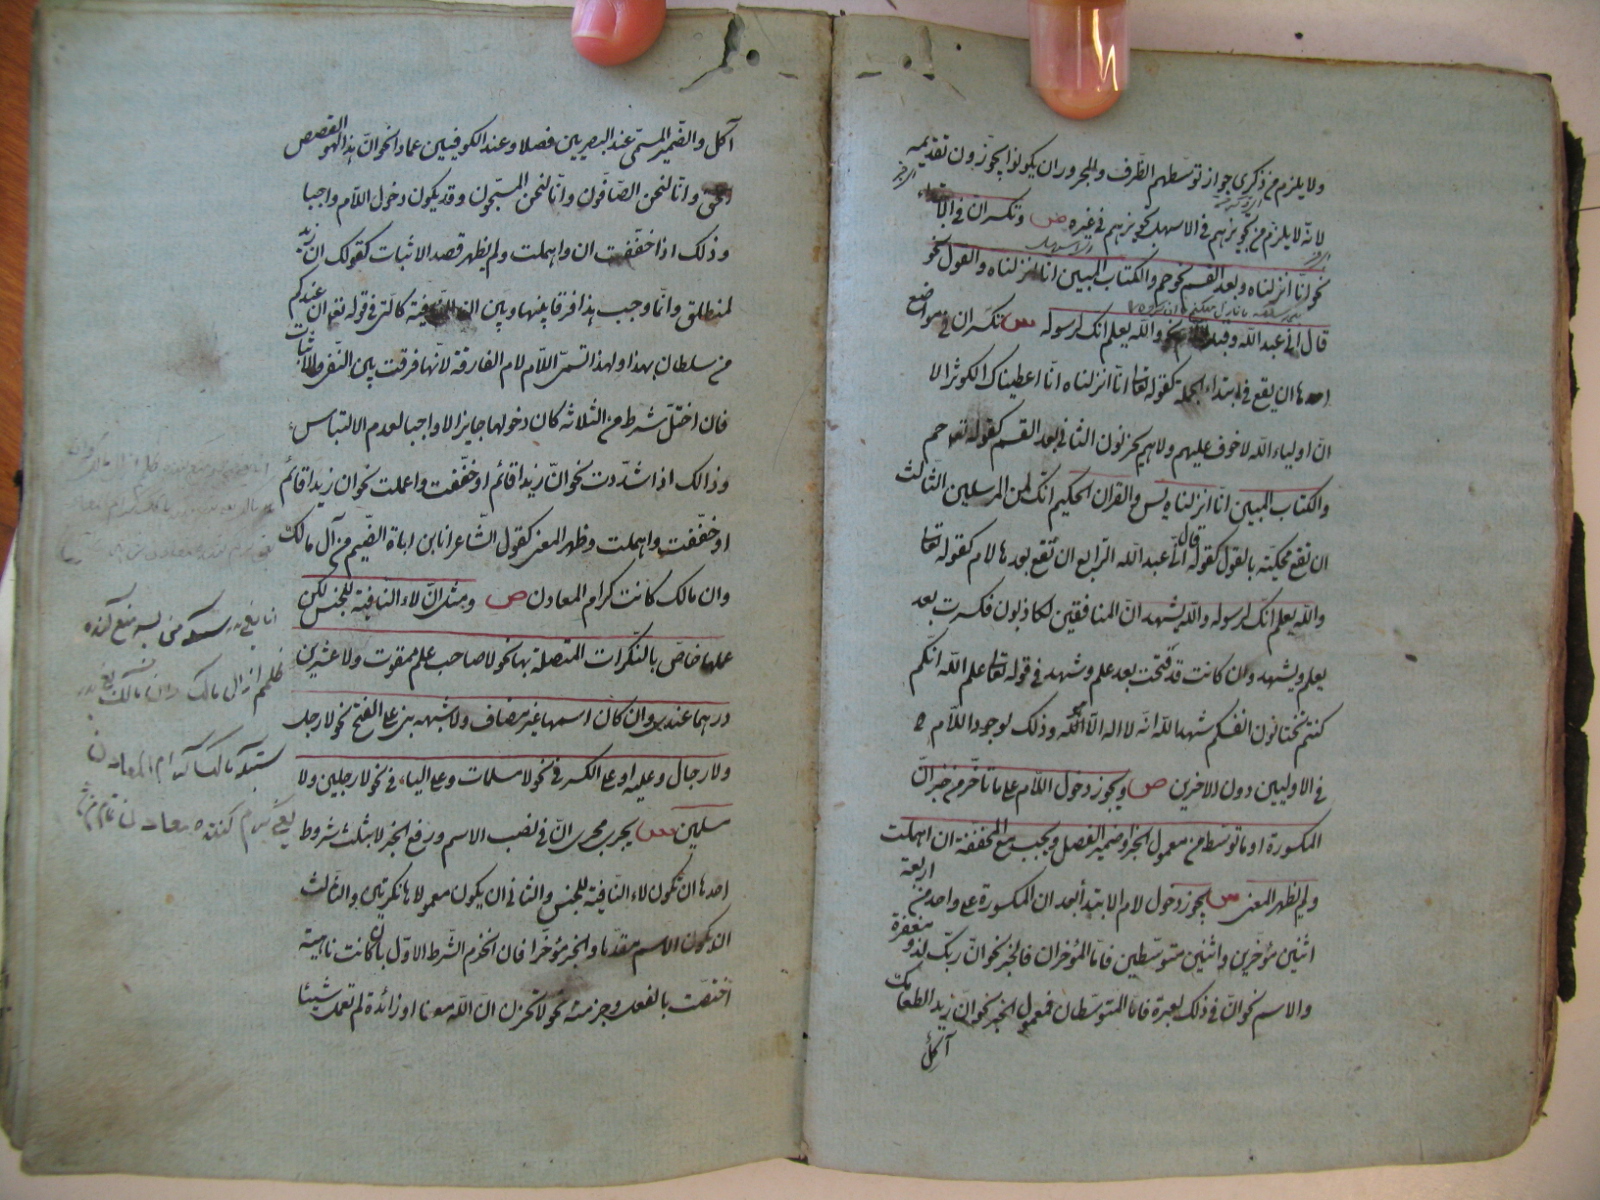 ولا يلزم من ذكرى جواز توسطهم الظرف والمجرور ان يكونوا يجوزون تقديمه
لانه لا يلزم من تجويزهم فى الاسهل تجويزهم فى غيره ص وتكسر ان فى الابتداء
نحو انا انزلناه وبعد القسم نحو حم والكتاب المبين انا انزلناه والقول نحو
قال انى عبد الله وقبل اللام نحو والله يعلم انك لرسوله س تكسر ان فى مواضع
احدها ان يقع فى ابتداء الجملة كقوله تعالى انا انزلناه انا اعطيناك الكوثر الا
ان اولياء الله لا خوف عليهم ولا هم يحزنون الثانى بعد القسم كقوله تعالى حم
والكتاب المبين انا انزلناه يس والقران الحكيم انك لمن المرسلين الثالث
ان تقع محكية بالقول كقوله قال انى عبد الله الرابع ان تقع بعدها لام كقوله تعالى
والله يعلم انك لرسوله والله يشهد ان المنافقين لكاذبون فكسرت بعد
يعلم ويشهد وان كانت قد فتحت بعد علم وشهد فى قوله تعالى علم الله انكم
كنتم تختانون انفسكم شهد الله انه لا اله الا هو وذلك لوجود اللام
فى الاوليين دون الاخرين ص ويجوز دخول اللام على ما تأخر من خبر ان
المكسورة او ما توسط من معمول الخبر او ضمير الفصل ويجب مع المخففة ان اهملت
ولم يظهر المعنى س يجوز دخول لام الابتداء بعد ان المكسورة على واحد من اربعة
اثنين مؤخرين واثنين متوسطين فاما المؤخران فالخبر نحو ان ربك لذو مغفرة
والاسم نحو ان فى ذلك لعبرة فاما المتوسطان فمعمول الخبر نحو ان زيدا لطعامك
آكل
آكل والضمير المسمى عند البصريين فصلا وعند الكوفيين عمادا نحو ان هذا لهو القصص
الحق وانا لنحن الصافون وانا لنحن المسبحون وقد يكون دخول اللام واجبا
وذلك اذا خففت ان واهملت ولم يظهر قصد الاثبات كقولك ان زيد
لمنطلق وانما وجب هذا فرقا بينها وبين ان النافية كالتى فى قوله تعالى ان عندكم
من سلطان بهذا ولهذا تسمى اللام لام الفارقة لانها فرقت بين النفى والاثبات
فان اختل شرط من الثلاثة كان دخولها جايزا لا واجبا لعدم الالتباس
وذالك اذا شددت نحو ان زيدا قائم او خففت واعملت نحو ان زيدا قائم
او خففت واهملت وظهر المعنى كقول الشاعر انا ابن اباة الضيم من آل مالك
وان مالك كانت كرام المعادن ص ومثل ان لاء النافية للجنس لكن
عملها خاص بالنكرات المتصلة بها نحو لا صاحب علم ممقوت ولا عشرين
درهما عندى وان كان اسمها غير مضاف ولا شبهه بنى على الفتح نحو لا رجل
ولا رجال وعليه او على الكسر فى نحو لا مسلمات وعلى الياء فى نحو لا رجلين ولا
مسلمين س يجرى مجرى ان فى نصب الاسم ورفع الخبر لا بثلث شروط
احدها ان تكون لاء النافية للجنس والثانى ان يكون معمولاها نكرتين والثالث
ان يكون الاسم مقدما والخبر مؤخرا فان انخرم الشرط الاول بان كانت ناهية
اختصت بالفعل وجزمته نحو لا تحزن ان الله معنا او زائدة لم تعمل شيئا